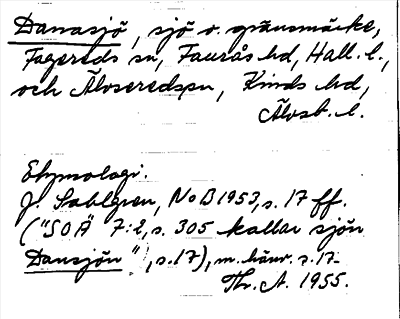 Danasjö, sjö o. gränsmärke,
Fagereds sn, Faurås hd, Hall. l.,
och Älvseredssn, Kinds hd,
Älvsb. l.
Etymologi.
J. Sahlgren, NoB 1953, s. 17 ff.
("SOÄ 7:2, s. 305 kallar sjön
Dansjön", s. 17), m. hänv. s. 17.
Th. A. 1955.